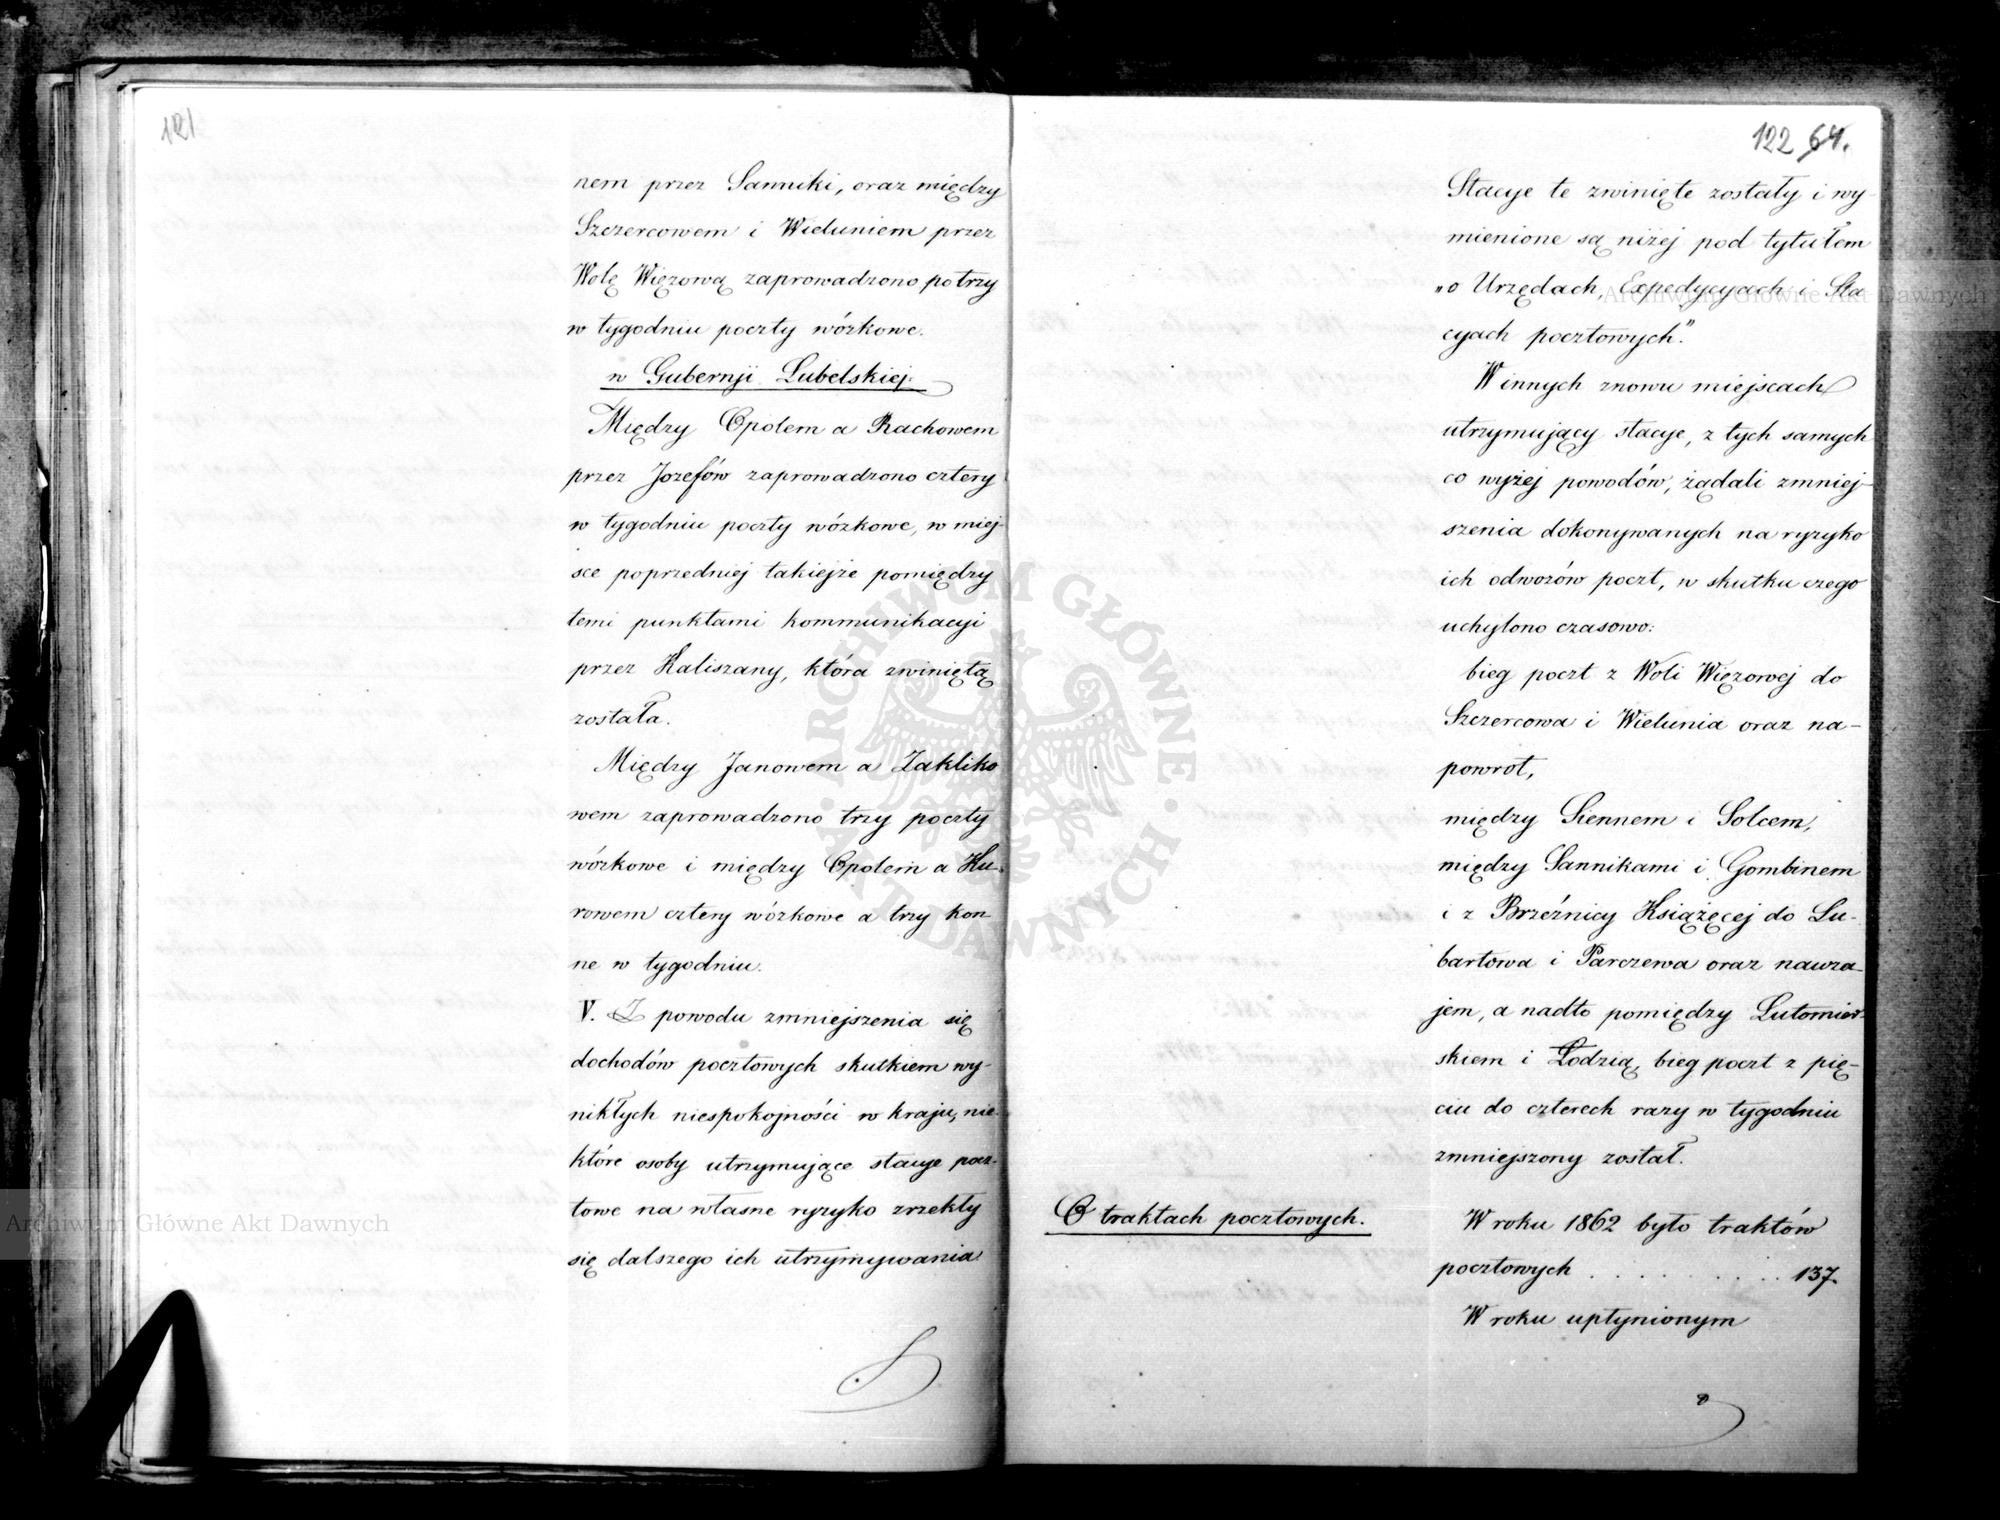 121
nem przez Sanniki, oraz między
Szczercowem i Wieluniem przez
Wolę Więzową zaprowadzono po trzy
w tygodniu poczty wózkowe.
w Gubernji Lubelskiej:
Między Opolem a Rachowem
przez Jozefów zaprowadzono cztery
w tygodniu poczty wózkowe, w miej-
sce poprzedniej takiejże pomiędzy
temi punktami kommunikacyi
przez Kaliszany, która zwiniętą
została.
Między Janowem a Zakliko
wem zaprowadzono trzy poczty
wózkowe i między Opolem a Ku-
rowem cztery wózkowe a trzy kon-
ne w tygodniu.
V. Z powodu zmniejszenia się
dochodów pocztowych skutkiem wy-
nikłych niespokojności w kraju, nie-
które osoby utrzymujące stacye pocz-
towe na własne ryzyko zrzekły
się dalszego ich utrzymywania
122 64.
Stacye te zwinięte zostały i wy-
mienione są niżej pod tytułem
"o Urzędach, Expedycyach i Sta
cyach pocztowych."
W innych znowu miejscach
utrzymujący stacye, z tych samych
co wyżej powodów, żądali zmniej-
szenia dokonywanych na ryzyko
ich odwozów poczt, w skutku czego
uchylono czasowo:
bieg poczt z Woli Więzowej do
Szczercowa i Wielunia oraz na-
powrot,
między Siennem i Solcem,
między Sannikami i Gombinem
i z Brzeźnicy Książęcej do Lu-
bartowa i Parczewa oraz nawza-
jem, a nadto pomiędzy Lutomier-
skiem i Łodzią, bieg poczt z pię-
ciu do czterech razy w tygodniu
zmniejszony został.
O traktach pocztowych.
W roku 1862 było traktów
pocztowych . . . . . . . . . . 137.
W roku upłynionym
Archiwum Główne Akt Dawnych
Archiwum Główne Akt Dawnych
ARCHIWUM GŁÓWNE AKT DAWNYCH